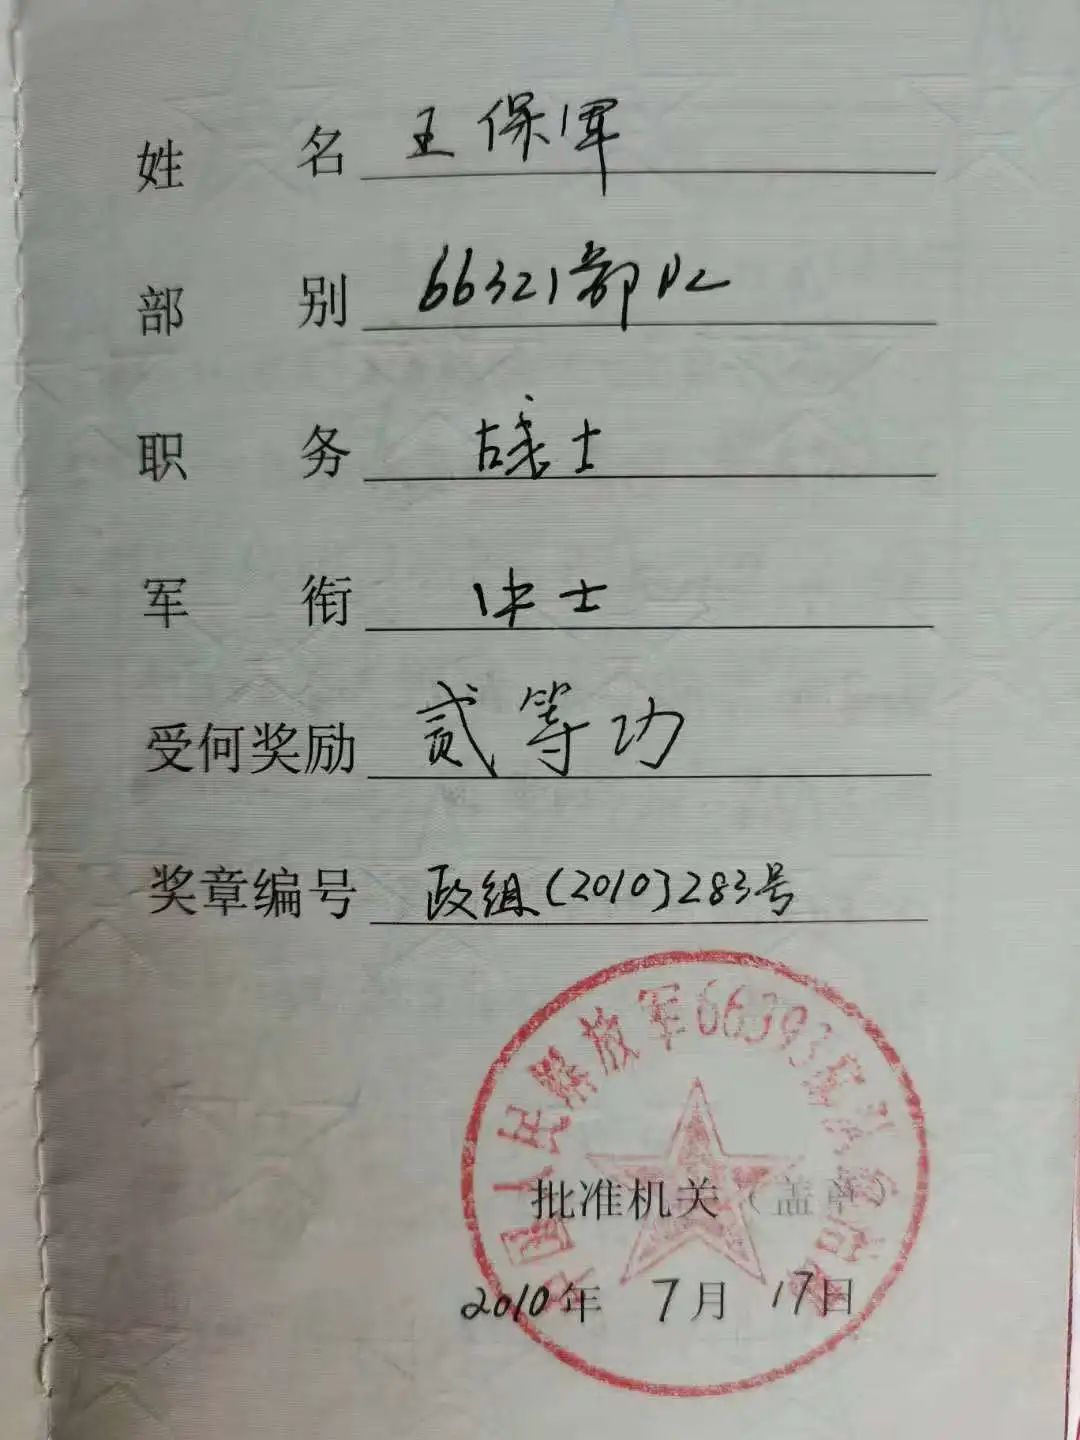 姓 名 王保军
部 别 66321部队
职 务 战士
军 衔 中士
受何奖励 贰等功
奖章编号 政组(2010)283号
中国人民解放军66393部队政治部
批准机关（盖章）
2010年 7月 17日